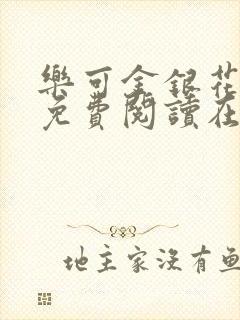 樂可金銀花
免費閱讀在
地主家沒有魚